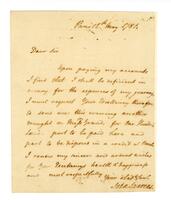 Paris 12th May 1781.
Dear Sir
Upon paying my accounts
I find that I shall be deficient in
money for the expences of my journey
I must request your Excellency therefore
to send me this evening another
draught on Mr Grand, for
part to be paid here and
part to be
I renew my sincere and ardent wishes
for your Excellencys health & happiness
and most respectfully
John Laurens